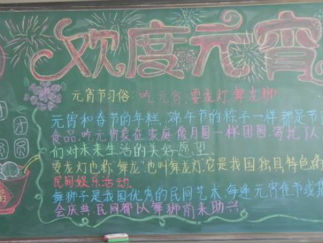 欢度元宵
元宵节习俗：吃元宵 耍龙灯 舞龙狮
元宵和春节的年糕，端午节的粽子一样，都是节
食品。吃元宵象征家庭像月圆一样团圆，寄托了人
们对未来生活的美好愿望
耍龙灯也称舞龙，也叫龙灯，它是我国独具特色的
民间娱乐活动
舞狮子是我国优秀的民间艺术，每逢元宵佳节或集
会庆典，民间都以舞狮前来助兴